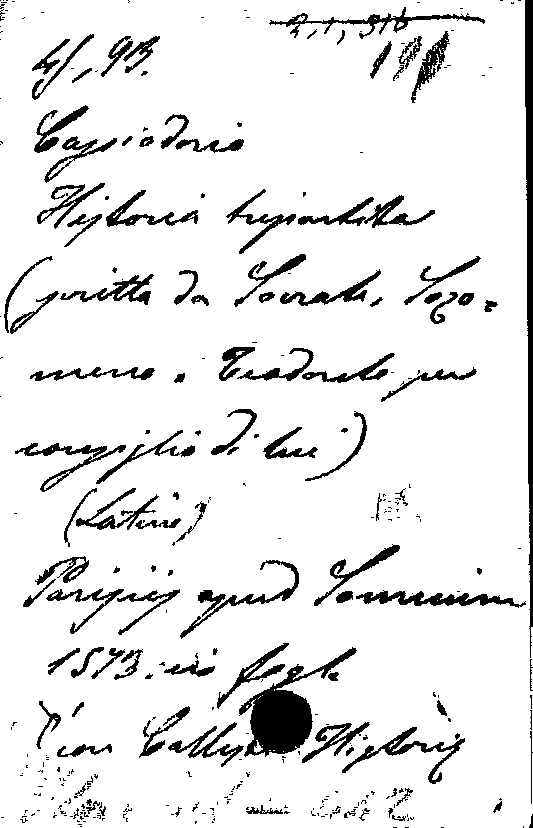 2,1,316
45,93.
191
Cassiodorio
Historia tripartita
(scritta da Socrate, Sozo=
meno e Teodoreto per
consiglio di lui)
(Latine)
Parisiis apud Sonnium
1573. in fogl.
(con Historiis